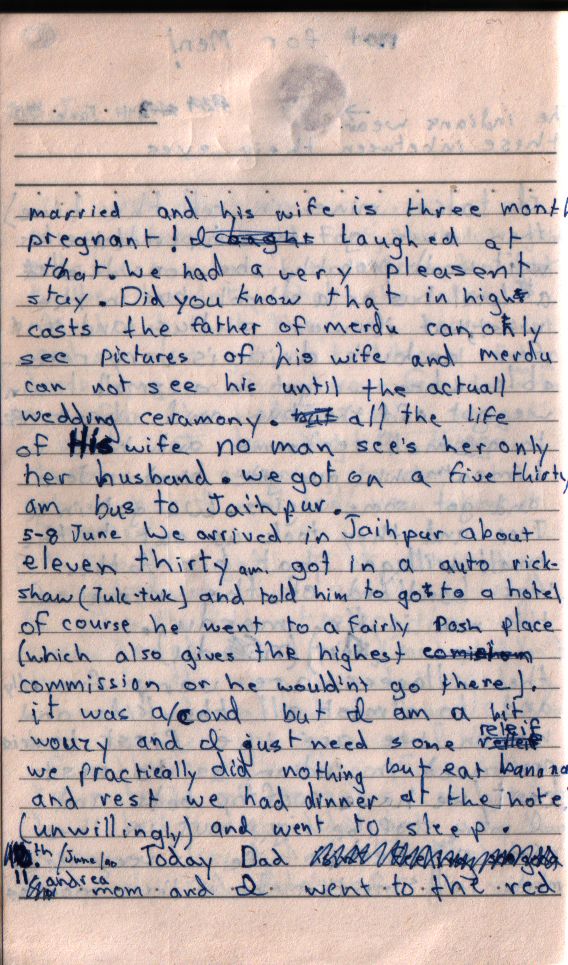 married and his wife is three month
pregnant! I laughed at
that. We had a very pleasent
stay. Did you know that in high
casts the father of merdu can only
see pictures of his wife and merdu
can not see his until the actuall
wedding ceramony. all the life
of His wife no man see's her only
her husband. we got on a five thirty
am bus to Jaihpur.
5-8 June We arrived in Jaihpur about
eleven thirty am. got in a auto rick-
shaw (Tuk-tuk) and told him to go to a hotel
of course he went to a fairly posh place
(which also gives the highest
commission or he would'nt go there).
it was a/cond but I am a bit
woury and I just need some releif
we practically did nothing but eat banana
and rest we had dinner at the hotel
(unwillingly) and went to sleep.
th/June/90 Today Dad
andrea mom and I went to the red